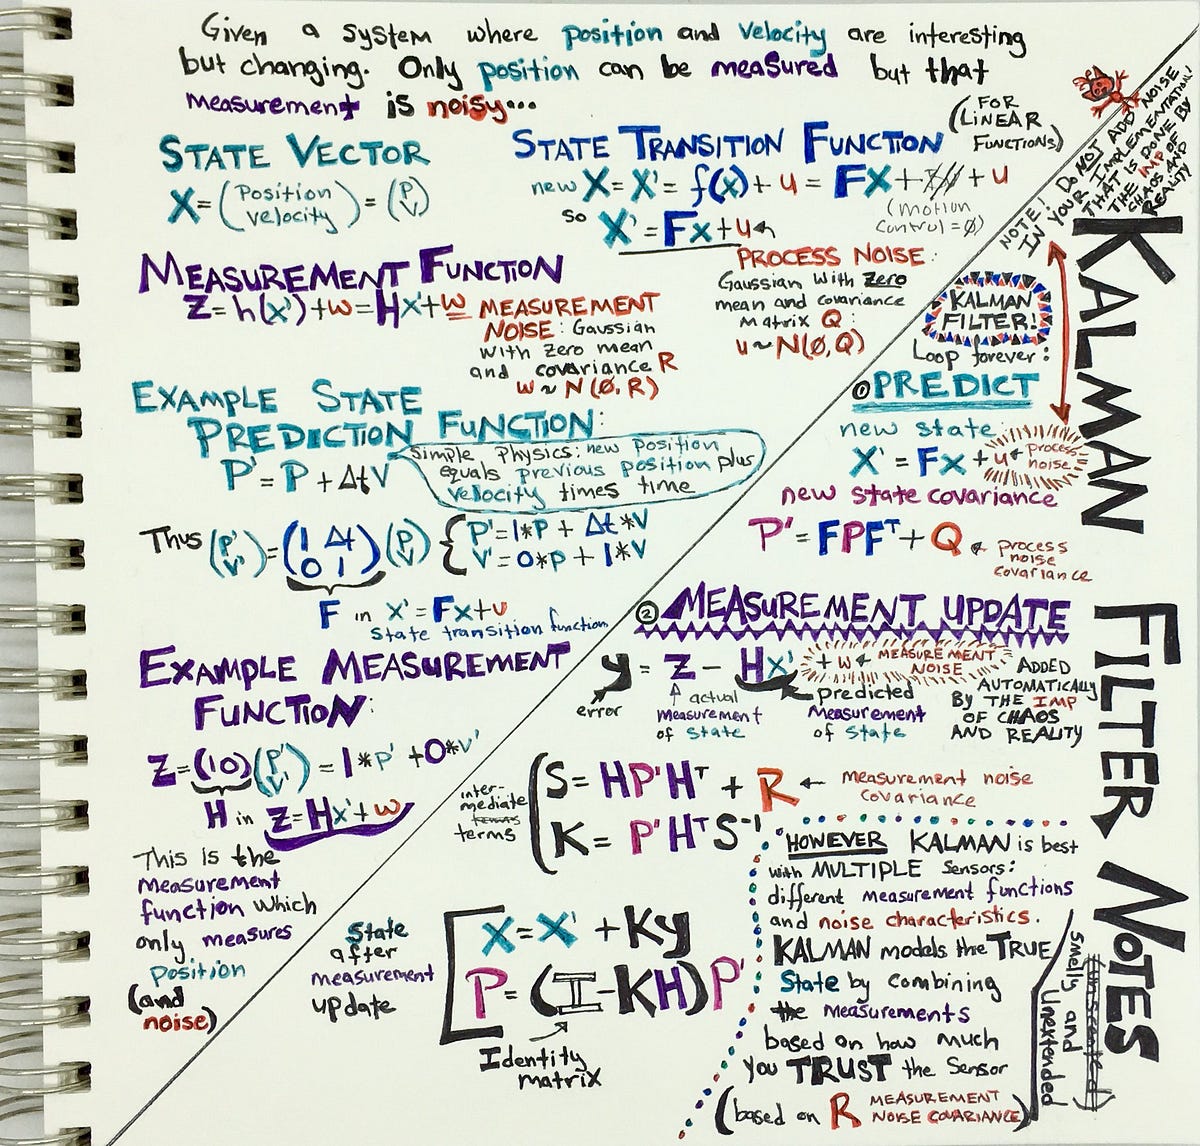 Given a system where position and velocity are interesting
but changing. Only position can be measured but that
measurement is noisy...
STATE VECTOR
X = (Position velocity) = (P V)
STATE TRANSITION FUNCTION
(FOR
LINEAR
FUNCTIONS)
new X = X' = f(x) + u = Fx + + u
(motion
control = ∅)
so X' = Fx + u
PROCESS NOISE:
Gaussian with Zero
mean and covariance
Matrix Q:
u ~ N(∅, Q)
MEASUREMENT FUNCTION
Z = h(x') + w = Hx' + w
MEASUREMENT
NOISE: Gaussian
with zero mean
and covariance R
w ~ N(∅, R)
EXAMPLE STATE
PREDICTION FUNCTION:
P' = P + Δt V
Simple Physics: new position
equals previous position plus
velocity times time
Thus (P' V') = (1 Δt 0 1) (P V) { P' = 1*P + Δt*V
V' = 0*P + 1*V
F in X' = Fx + u
State transition function
EXAMPLE MEASUREMENT
FUNCTION:
Z = (1 0) (P' V') = 1*P' + 0*V'
H in Z = Hx' + w
This is the
measurement
function which
only measures
Position
(and
noise)
NOTE! DO NOT ADD NOISE
IN YOUR IMPLEMENTATION!
THAT IS DONE BY
THE IMP OF
CHAOS AND
REALITY
KALMAN FILTER NOTES
(unscented)
Smelly and
Unextended
KALMAN
FILTER!
Loop forever:
① PREDICT
new state:
X' = Fx + u ← process
noise
new state covariance
P' = FPFᵀ + Q ← process
noise
covariance
② MEASUREMENT UPDATE
y = Z - Hx' + w ← MEASUREMENT
NOISE
ADDED
AUTOMATICALLY
BY THE IMP
OF CHAOS
AND REALITY
error
actual
measurement
of state
predicted
Measurement
of state
inter-
mediate
terms
terms
S = HP'Hᵀ + R ← Measurement noise
covariance
K = P'HᵀS⁻¹
State
after
measurement
update
X = X' + Ky
P = (I - KH)P'
Identity
matrix
HOWEVER KALMAN is best
with MULTIPLE Sensors:
different measurement functions
and noise characteristics.
KALMAN models the TRUE
State by combining
the measurements
based on how much
you TRUST the Sensor
(based on R MEASUREMENT
NOISE COVARIANCE)